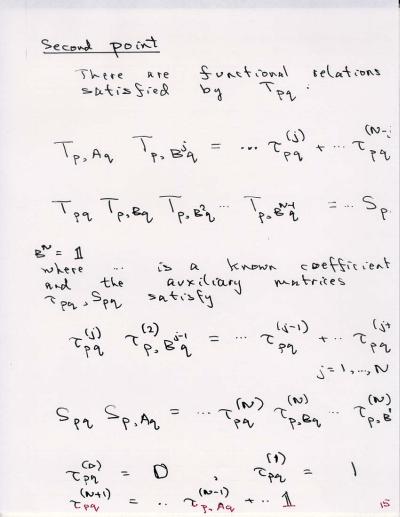 Second point
There are functional relations
satisfied by T_pq .
T_p,Aq T_p,B^jq = ... τ_pq^(j) + ... τ_pq^(N-j
T_pq T_p,Bq T_p,B^2q ... T_p,B^N-1q = ... S_p
B^N = 1
where ... is a known coefficient
and the auxiliary matrices
τ_pq, S_pq satisfy
τ_pq^(j) τ_p,B^j-1q^(2) = ... τ_pq^(j-1) + ... τ_pq^(j+
j = 1, ..., N
S_pq S_p,Aq = ... τ_pq^(N) τ_p,Bq^(N) ... τ_p,B^(N)
τ_pq^(0) = 0 , τ_pq^(1) = 1
τ_pq^(N+1) = .. τ_p,Aq^(N-1) + .. 1
15